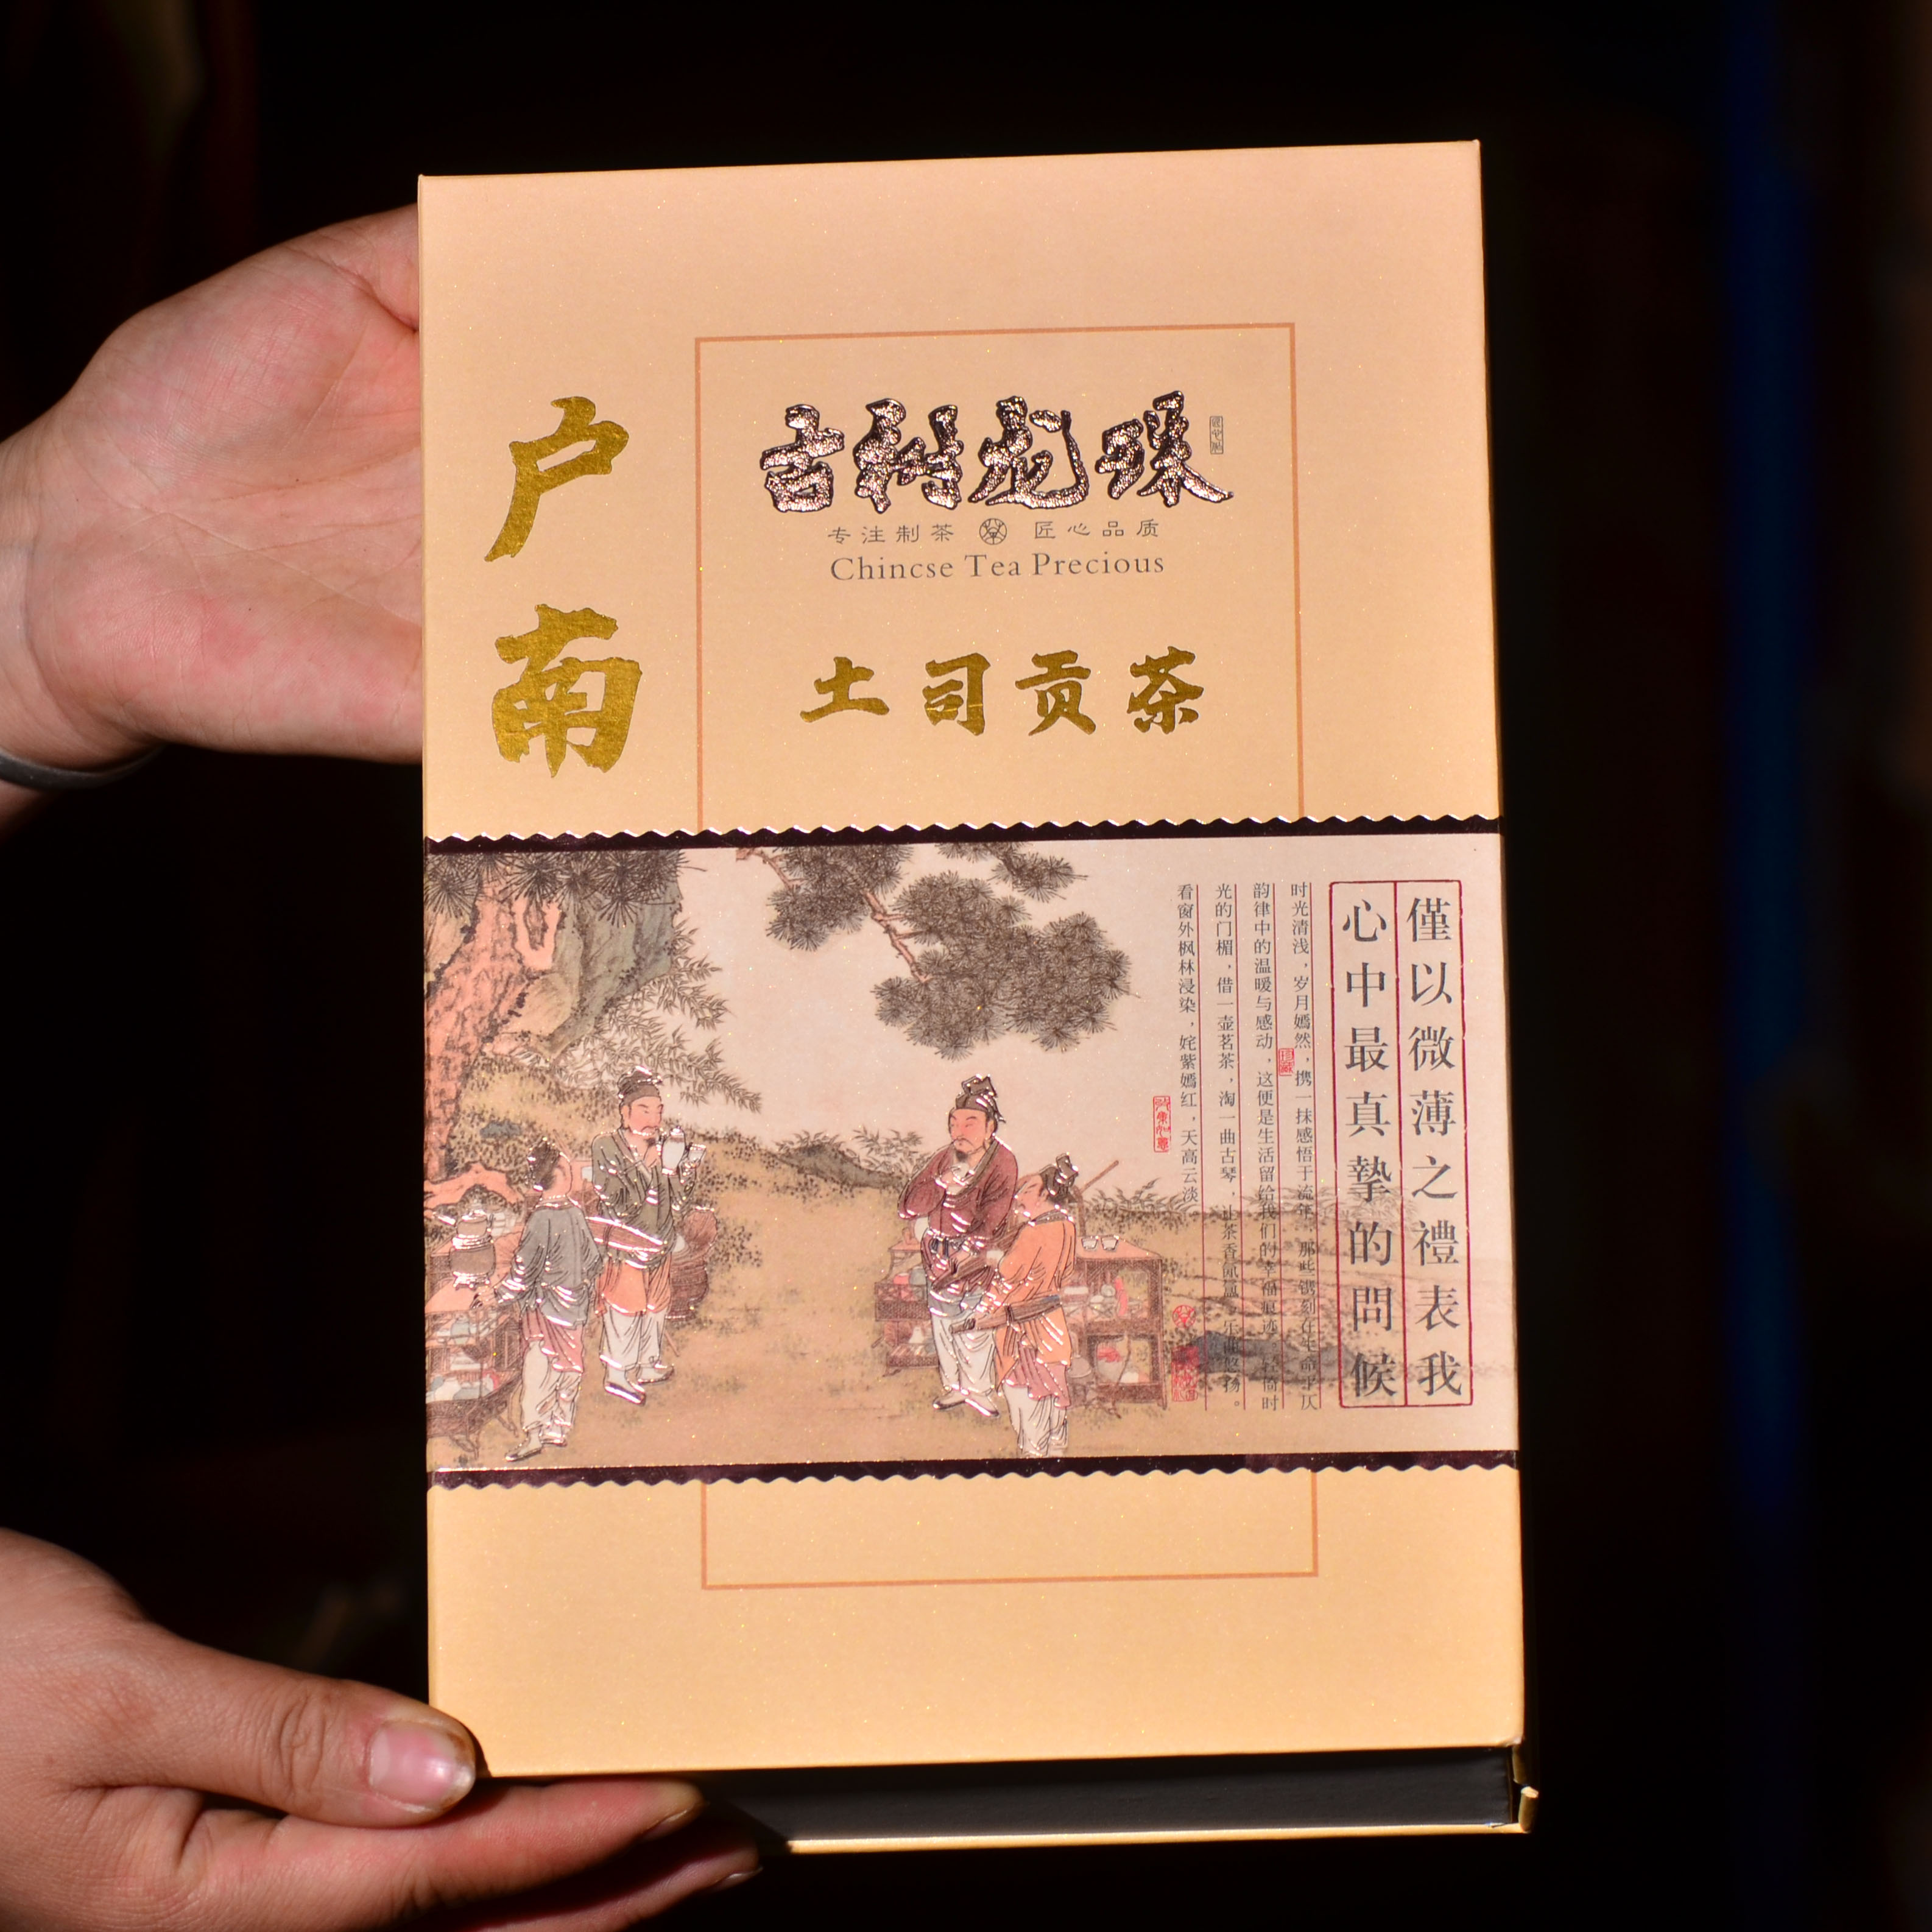 户南
古树龙珠
专注制茶 匠心品质
Chincse Tea Precious
土司贡茶
僅以微薄之禮表我
心中最真摯的問候
时光清浅，岁月嫣然，携一抹感悟于流年，那些镌刻在生命平仄
韵律中的温暖与感动，这便是生活留给我们的幸福痕迹，轻倚时
光的门楣，借一壶茗茶，淘一曲古琴，让茶香氤氲，乐曲悠扬。
看窗外枫林浸染，姹紫嫣红，天高云淡
珍藏